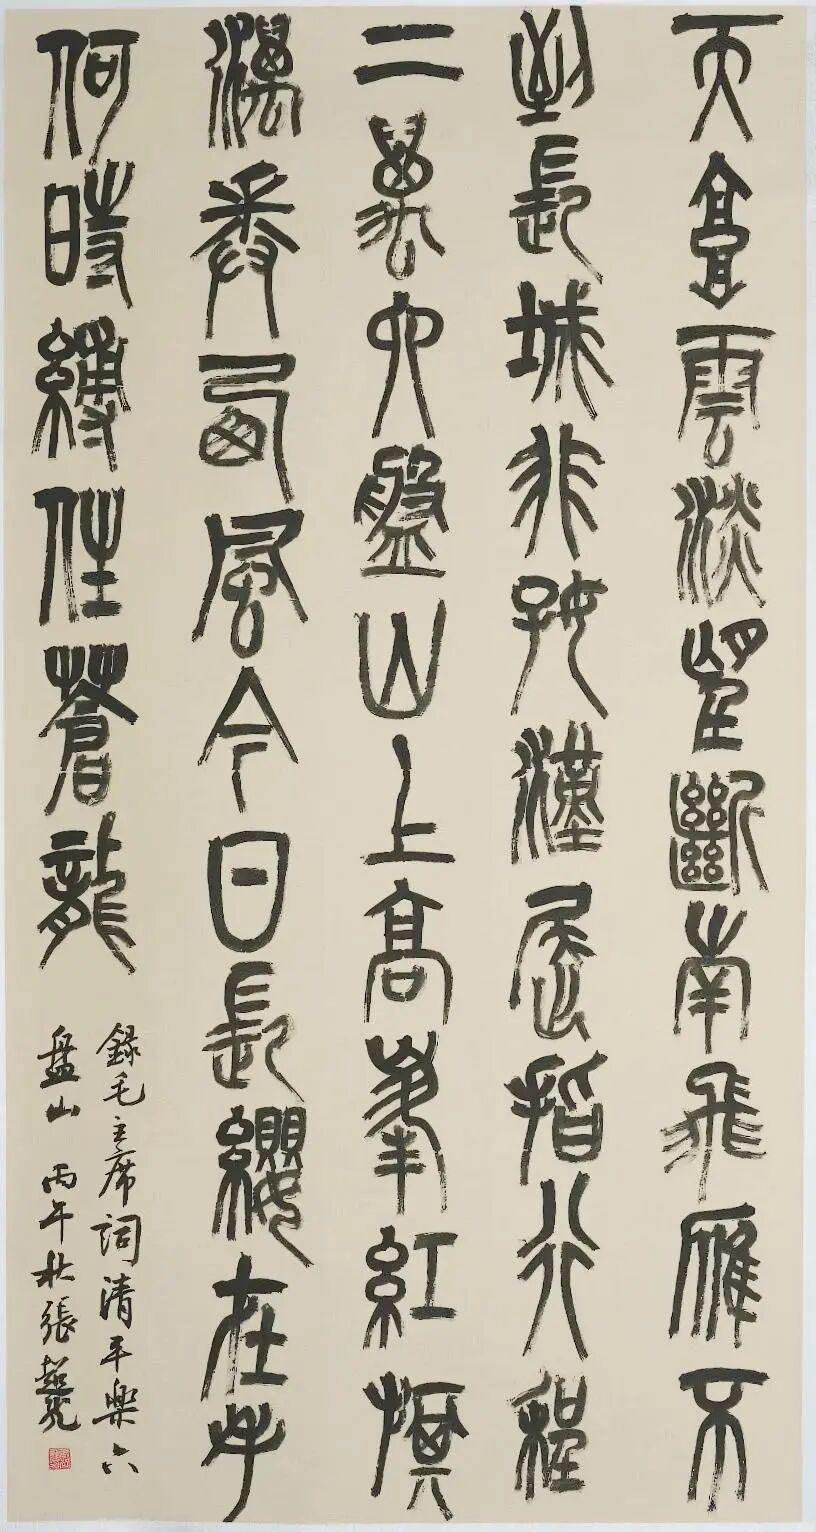 天高雲淡望斷南飛雁不
到長城非好漢屈指行程
二萬六盤山上高峯紅旗
漫卷西風今日長纓在手
何時縛住蒼龍
錄毛主席詞清平樂六
盘山 丙午秋張